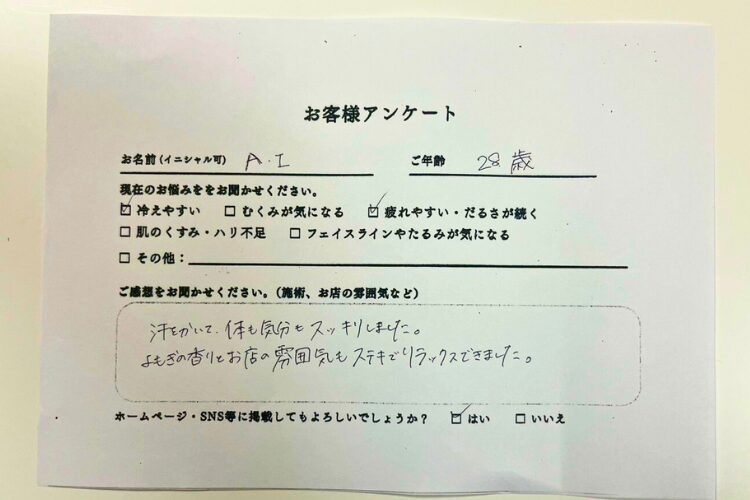 お客様アンケート
お名前(イニシャル可) A.I ご年齢 28歳
現在のお悩みををお聞かせください。
☑ 冷えやすい □ むくみが気になる ☑ 疲れやすい・だるさが続く
□ 肌のくすみ・ハリ不足 □ フェイスラインやたるみが気になる
□ その他:
ご感想をお聞かせください。(施術、お店の雰囲気など)
汗をかいて、体も気分もスッキリしました。
よもぎの香りとお店の雰囲気もステキでリラックスできました。
ホームページ・SNS等に掲載してもよろしいでしょうか? ☑ はい □ いいえ